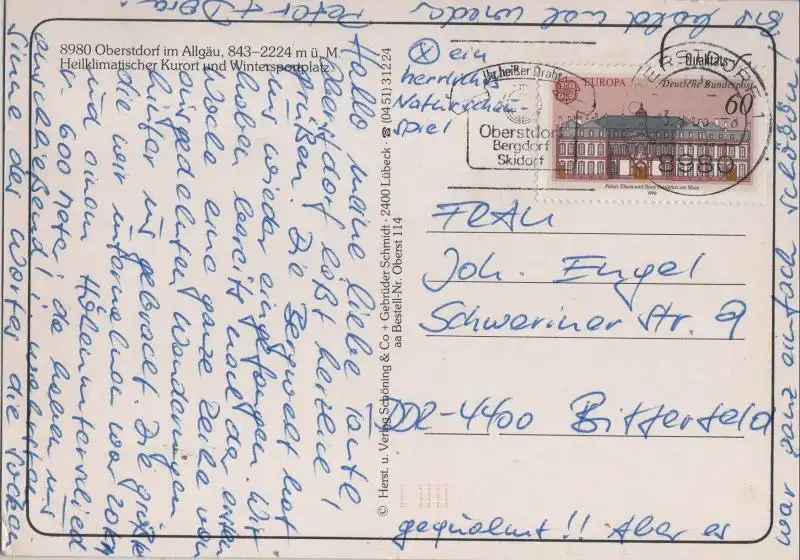 8980 Oberstdorf im Allgäu, 843–2224 m ü. M.
Heilklimatischer Kurort und Wintersportplatz
Hallo, meine liebe Tante!
Oberstdorf läßt herzlich
grüßen. Die Bergwelt hat
uns wieder eingefangen. Wir
haben bereits nach der ersten
Woche eine ganze Reihe von
ausgedehnten Wanderungen
hinter uns gebracht. Die größte
die wir unternahmen war 20 km
und einen Höhenunterschied
von 600 Meter; da haben uns
anschließend im wahrsten
Sinne des Wortes die Socken
gequalmt!! Aber es
war ganz einfach schön
Bis bald mal wieder
Peter + Dora
ⓧ ein
herrliches
Naturschau-
spiel
© Herst. u. Verlag Schöning & Co + Gebrüder Schmidt · 2400 Lübeck · ☎ (0451) 31224
aa Bestell-Nr. Oberst 114
Ihr heißer Draht
Oberstdorf
Bergdorf
Skidorf
OBERSTDORF 1
8980
EUROPA
Deutsche Bundespost
60
Palais Thurn und Taxis Frankfurt am Main
1990
Frau
Joh. Engel
Schweriner Str. 9
DDR-4400 Bitterfeld